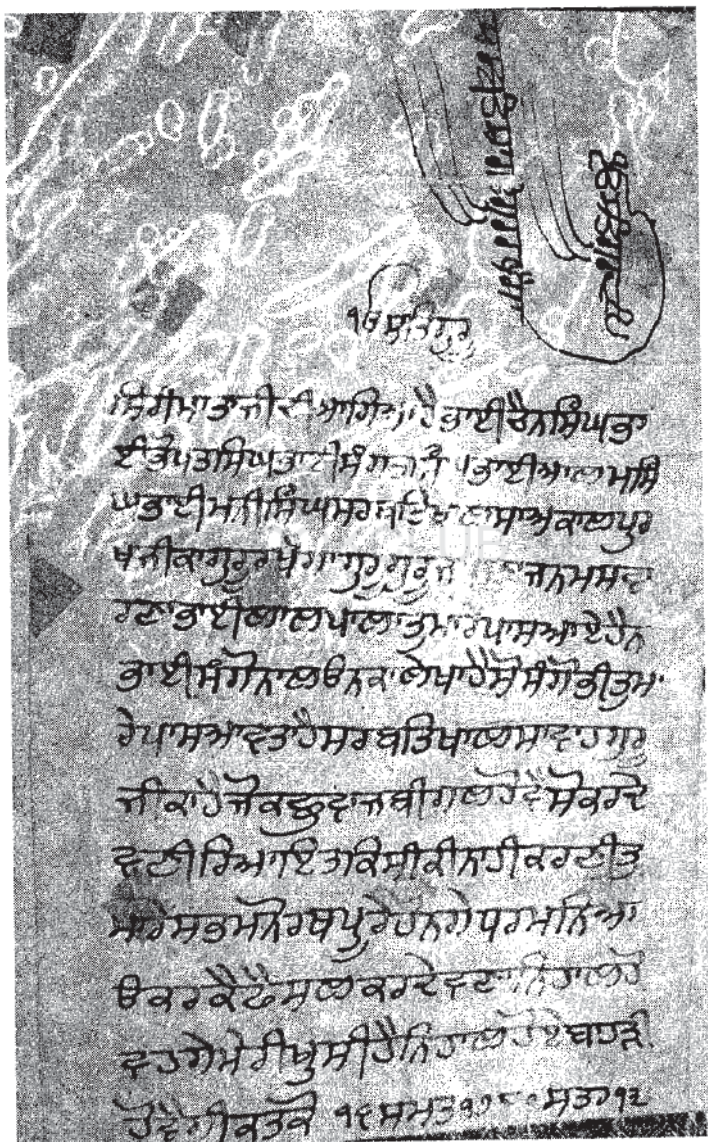 ੧ਓ ਸਤਿਗੁਰੂ
ਸਿਰੀ ਮਾਤਾ ਜੀ ਦੀ ਆਗਿਆ ਹੈ ਭਾਈ ਚੈਨ ਸਿੰਘ ਭਾ
ਈ ਭੋਪਤ ਸਿੰਘ ਭਾਈ ਆਲਮ ਸਿੰ
ਘ ਭਾਈ ਮਨੀ ਸਿੰਘ ਸਰਬਤਿ ਖਾਲਸਾ ਅਕਾਲ ਪੁਰ
ਖ ਜੀ ਕਾ ਗੁਰੂ ਰਖੇਗਾ ਗੁਰੂ ਗੁਰੂ ਜਨਮ ਸਵਾ
ਰਣਾ ਭਾਈ ਲਾਲ ਪਾਲਾ ਤੁਮਾਰੇ ਪਾਸ ਆਏ ਹੈਨ
ਭਾਈ ਸੰਗੋ ਨਾਲ ਓਨ ਕਾ ਲੇਖਾ ਹੈ ਸੋ ਸੰਗੋ ਭੀ ਤੁਮਾ
ਰੇ ਪਾਸ ਆਵਤਾ ਹੈ ਸਰਬਤਿ ਖਾਲਸਾ ਵਾਹਗੁਰੂ
ਜੀ ਕਾ ਹੈ ਜੋ ਕਛੁ ਵਾਜਬੀ ਗਲ ਹੋਵੈ ਸੋ ਕਰ ਦੇ
ਵਣੀ ਰਿਆਇਤ ਕਿਸੀ ਕੀ ਨਾਹੀ ਕਰਣੀ ਤੁ
ਮਾਰੇ ਸਭ ਮਨੋਰਥ ਪੁਰੇ ਹੋਨਗੇ ਧਰਮ ਨਿਆ
ਓ ਕਰਕੈ ਫੈਸਲ ਕਰ ਦੇਵਣਾ ਨਿਹਾਲ ਹੋ
ਵਹੁਗੇ ਮੇਰੀ ਖੁਸੀ ਹੈ ਨਿਹਾਲ ਹੋਏ ਬਾਹੁੜੀ
ਹੋਵੈਗੀ ਕਤਕੋ ੧੯ ਸਮਤ ਸਤਰਾ ੧੩